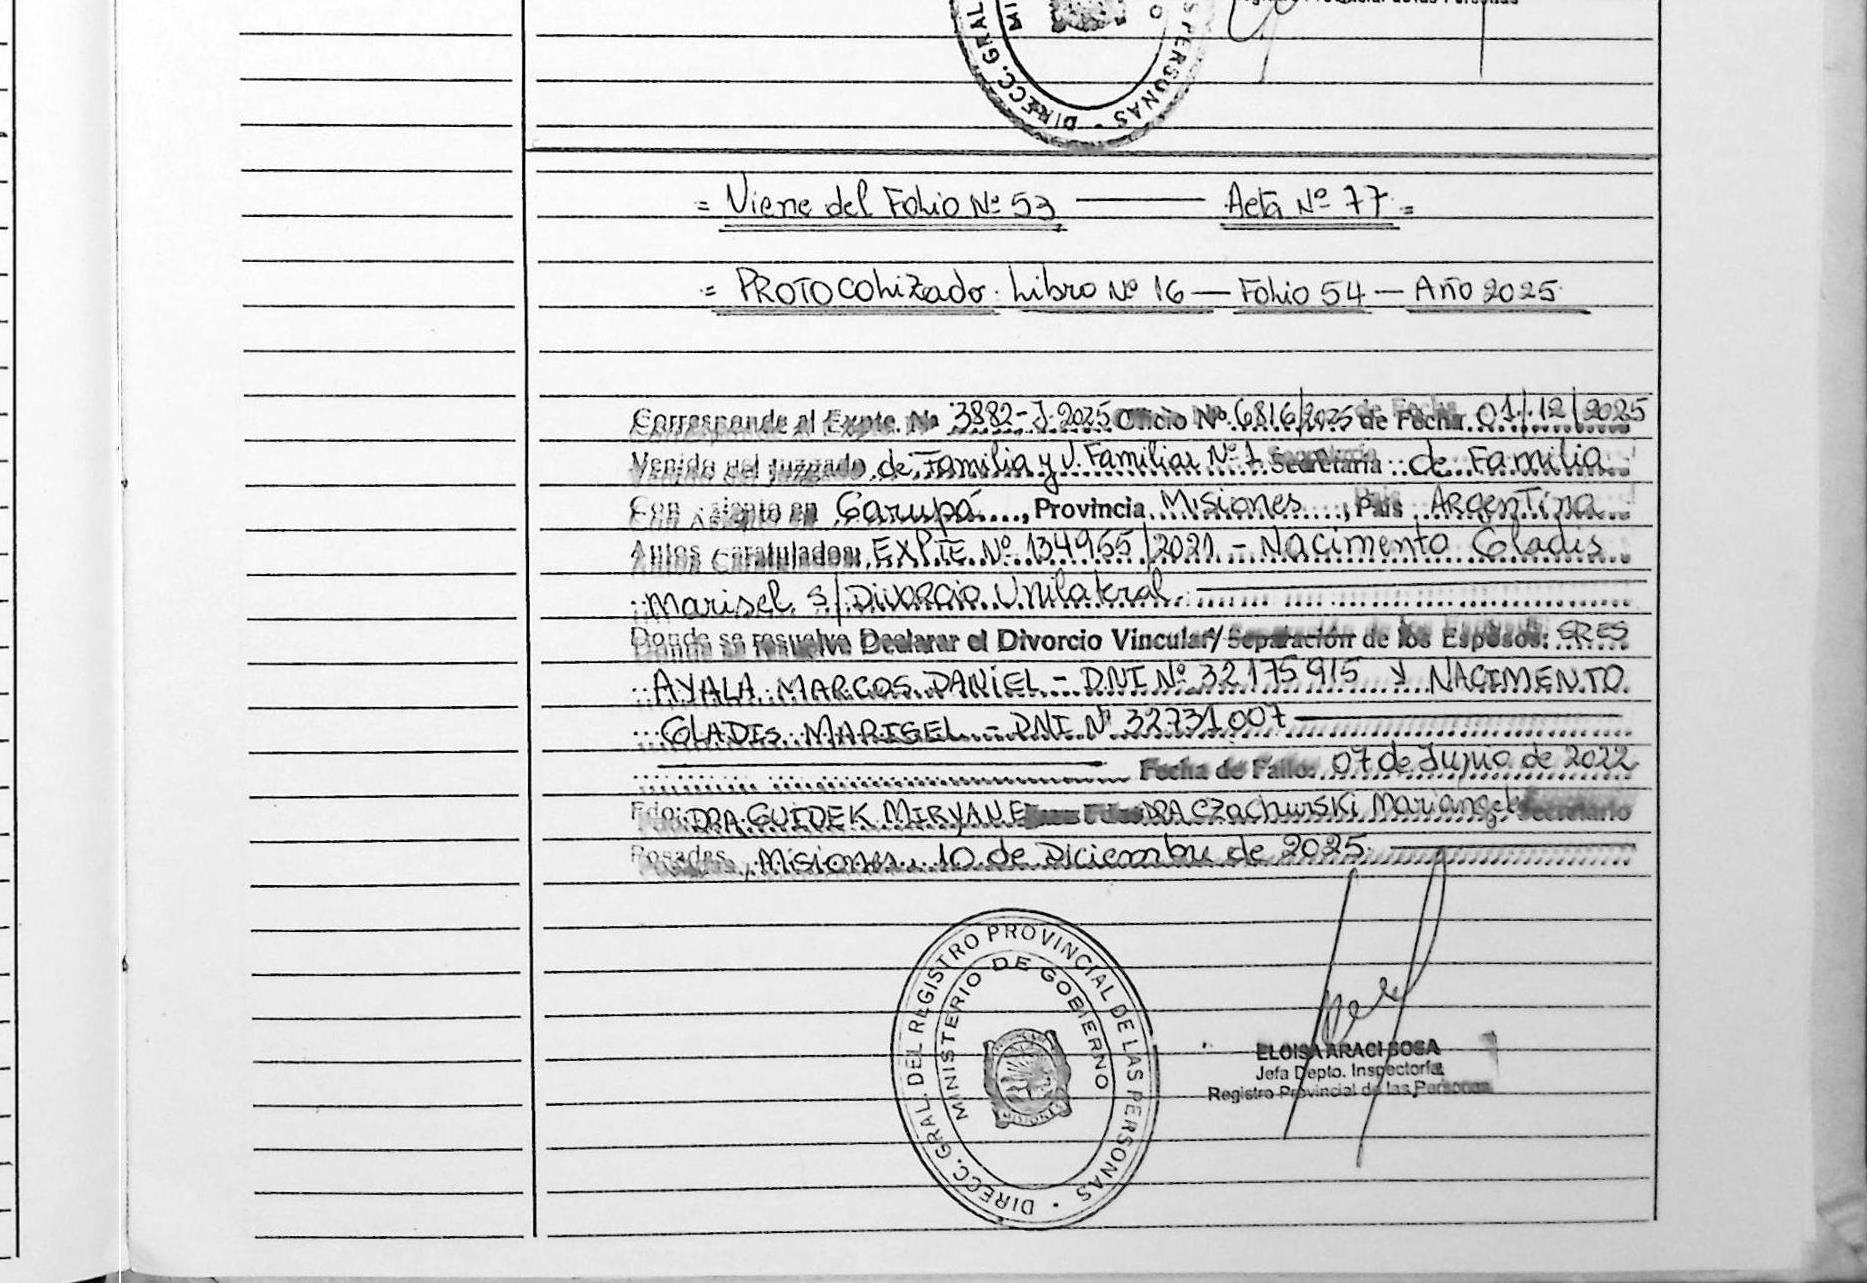 DIRECC. GRAL PERSONAS
= Viene del Folio Nº 53 — Acta Nº 77 =
= PROTOCOLIZADO. Libro Nº 16 — Folio 54 — Año 2025
Corresponde al Expte. Nº 3882-J-2025 Oficio Nº 6816/2025 de Fecha 01/12/2025
Venido del Juzgado de Familia y V. Familiar Nº 1 Secretaría de Familia
Con Asiento en Garupá, Provincia Misiones, País Argentina
Autos Caratulados: EXPTE. Nº 134965/2021 - Nacimento Gladis
Marisel S/ Divorcio Unilateral.
Donde se resuelve Declarar el Divorcio Vincular/Separación de los Esposos: SRES
AYALA MARCOS DANIEL - DNI Nº 32175915 Y NACIMENTO
GLADIS MARISEL - DNI Nº 32731007
Fecha de Fallo: 07 de Junio de 2022
Fdo: DRA GUIDEK MIRYAN E DRA Czachurski Mariangel Secretario
Posadas, Misiones, 10 de Diciembre de 2025
DIRECC. GRAL. DEL REGISTRO PROVINCIAL DE LAS PERSONAS
MINISTERIO DE GOBIERNO
ELOISA ARACI SOSA
Jefa Depto. Inspectoría
Registro Provincial de las Personas